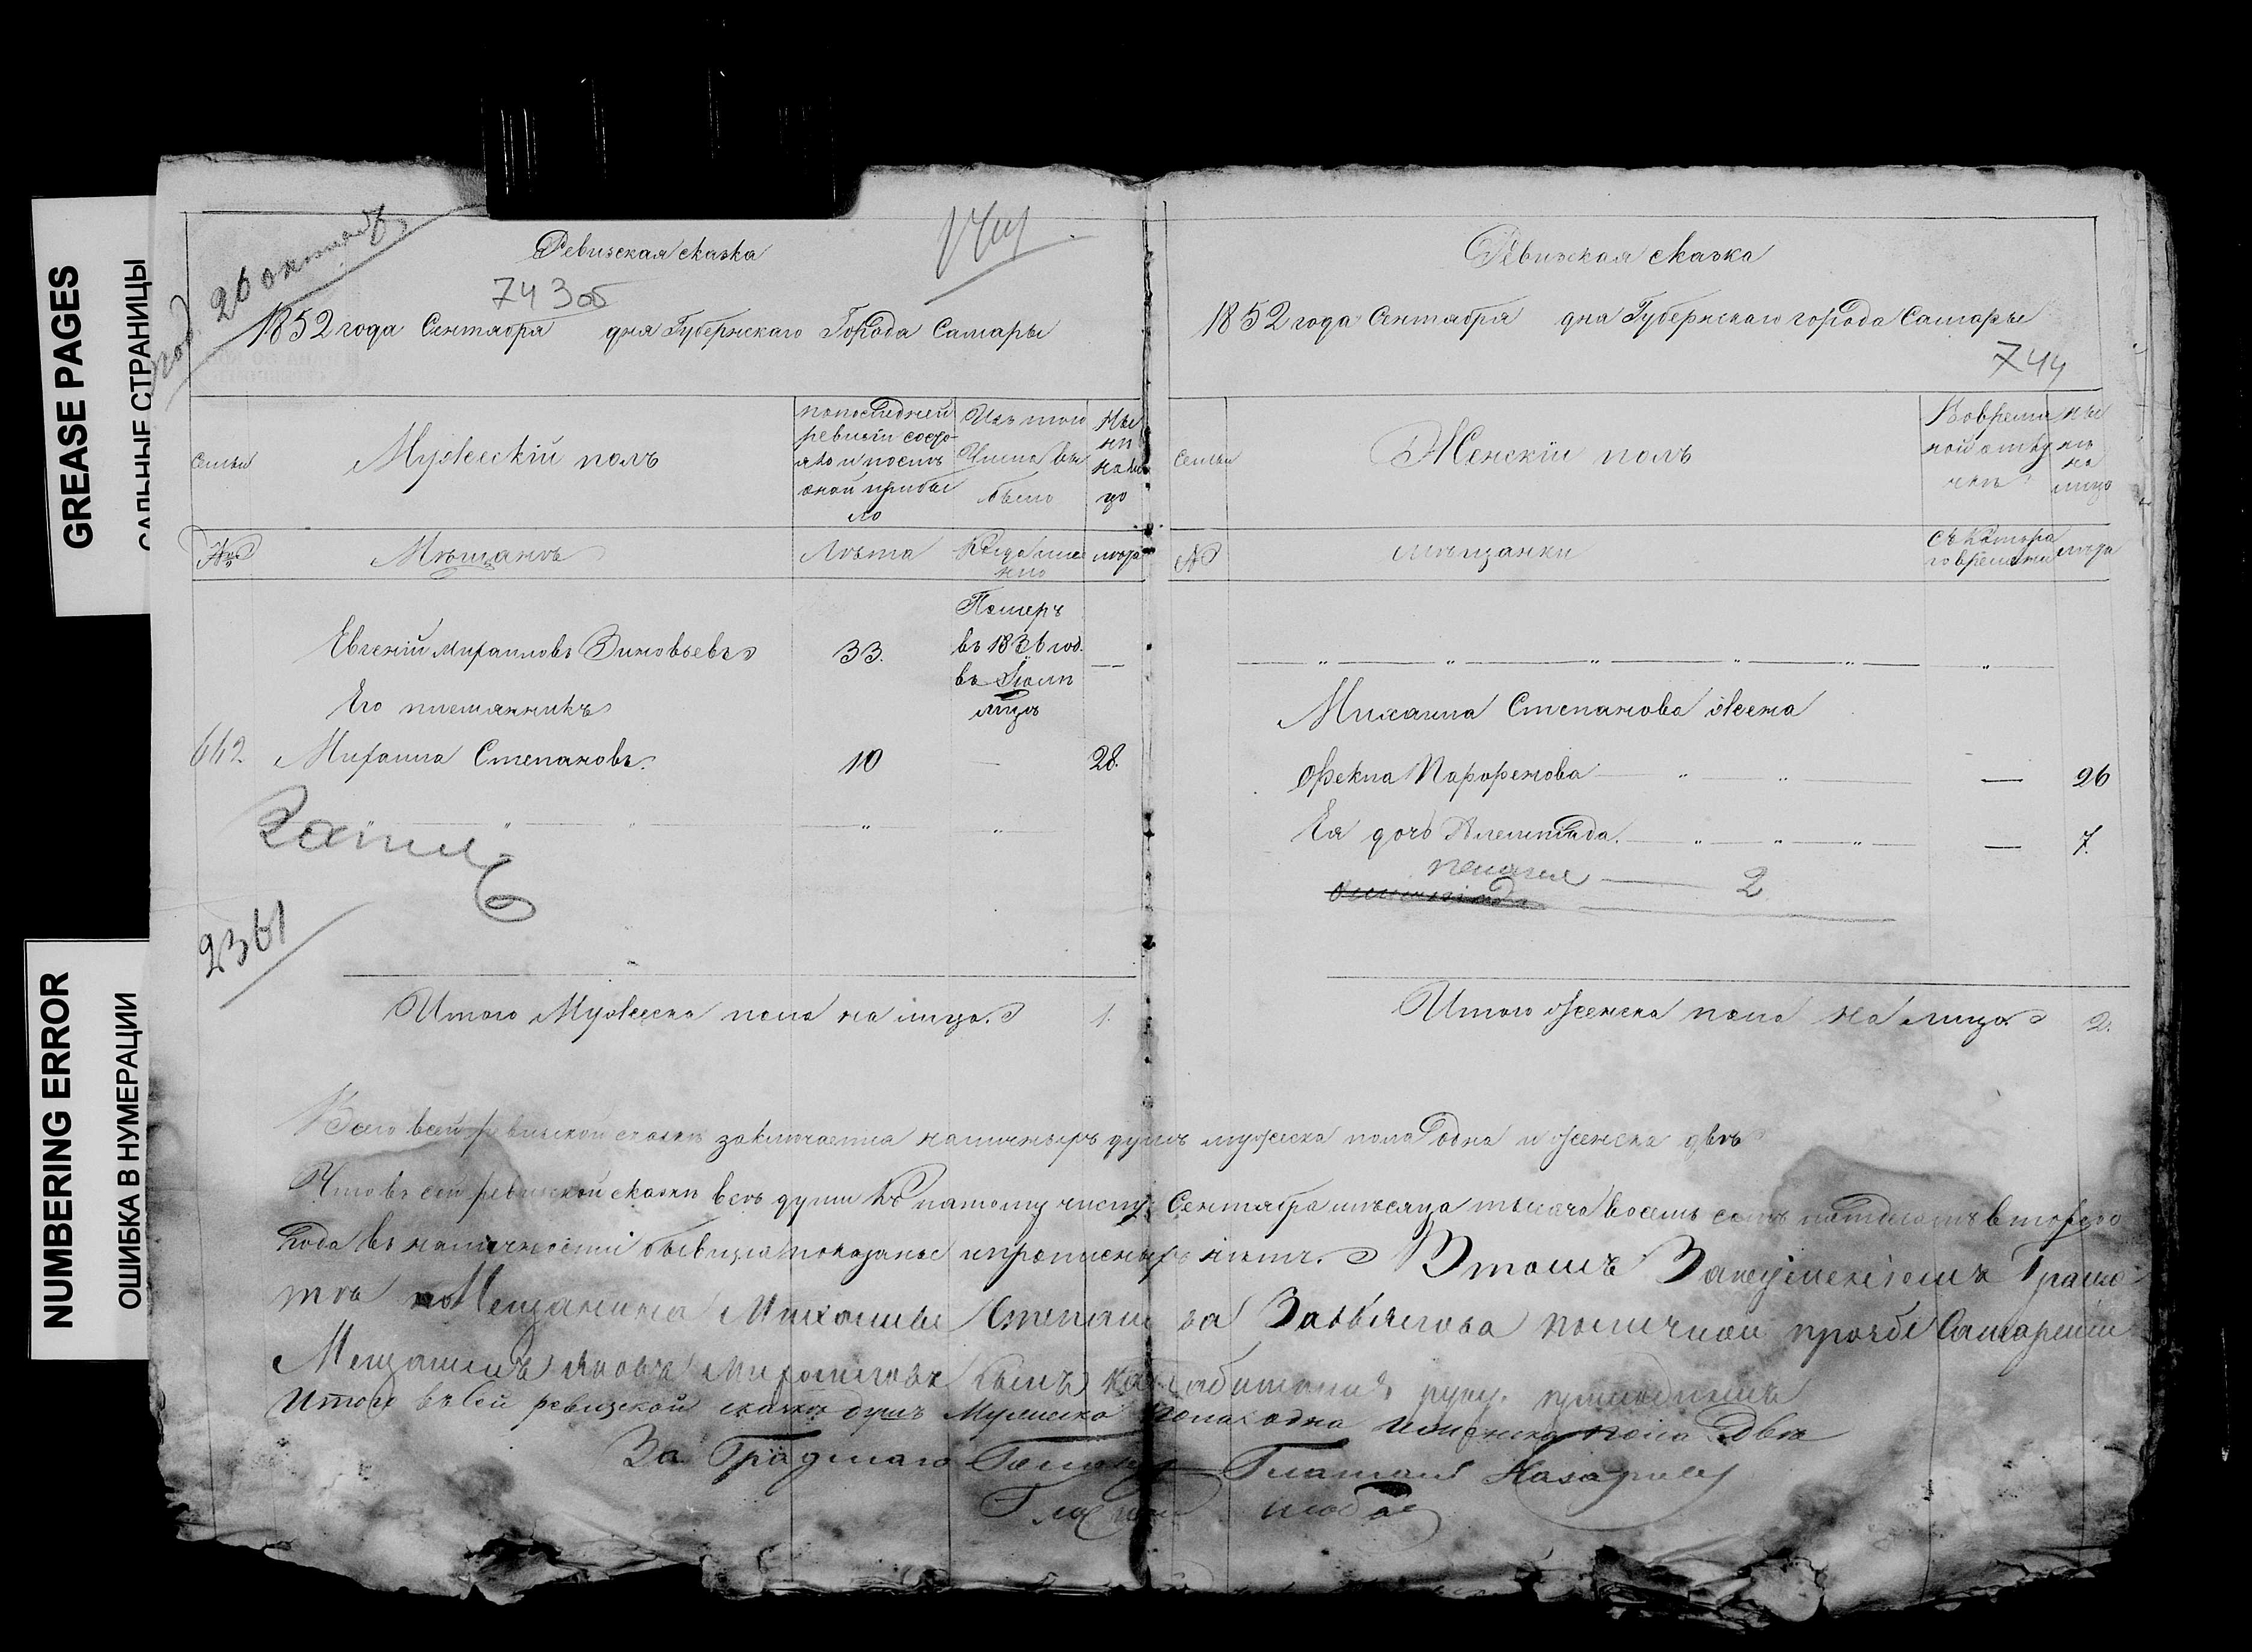 GREASE PAGES
САЛЬНЫЕ СТРАНИЦЫ
NUMBERING ERROR
ОШИБКА В НУМЕРАЦИИ
26 октяб
Ревизская сказка
743об
1852 года Сентября дня Губернскаго Города Самары
Семьи
Мужескій полъ
по последней ревизіи состояло и после оной прибыло
Изъ того числа выбыло
Ныне на лицо
№
Мѣщанъ
Лѣта
Когда именно
лѣта
Евгеній Михайловъ Зиновьевъ
33.
Померъ
въ 1836 год.
въ Іюлѣ
мцѣ
—
Его племянникъ
642 Михаила Степановъ. 10 — 28.
2361
Итого Мужеска пола на лицо. 1.
Ревизская сказка
1852 года Сентября дня Губернскаго города Самары
744
Семьи
Женскій полъ
Во временной отлучкѣ
ныне на лицо
№
мѣщанки
Съ котораго времени
лѣта
Михаила Степанова жена
Фекла Парфенова — 26
Ея дочь Алемпіада. — 7.
Пелагея — 2
Итого женска пола на лицо 2.
Всего в сей ревизской сказкѣ заключается наличныхъ душъ мужеска пола одна и женска двѣ
Что въ сей ревизской сказкѣ всѣ души къ пятому числу Сентября мѣсяца тысяча восемь сотъ пятдесятъ второго
года въ наличности бывшіе показаны и прописныхъ нѣтъ. В томъ
Мещанина Михаила Степанова личной прозбе Самарскій
Мещанинъ руку приложилъ
Итого въ сей ревизской сказкѣ душъ Мужеска пола одна и женска пола Двѣ
За Градскаго Голову Гласный
Гласный